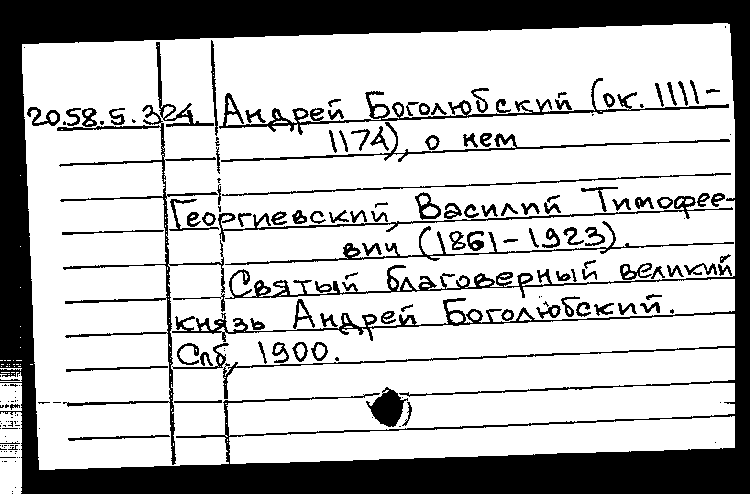 2058.5.324. Андрей Боголюбский (ок. 1111-
1174), о нем
Георгиевский, Василий Тимофее-
вич (1861-1923).
Святый благоверный великий
князь Андрей Боголюбский.
Спб, 1900.